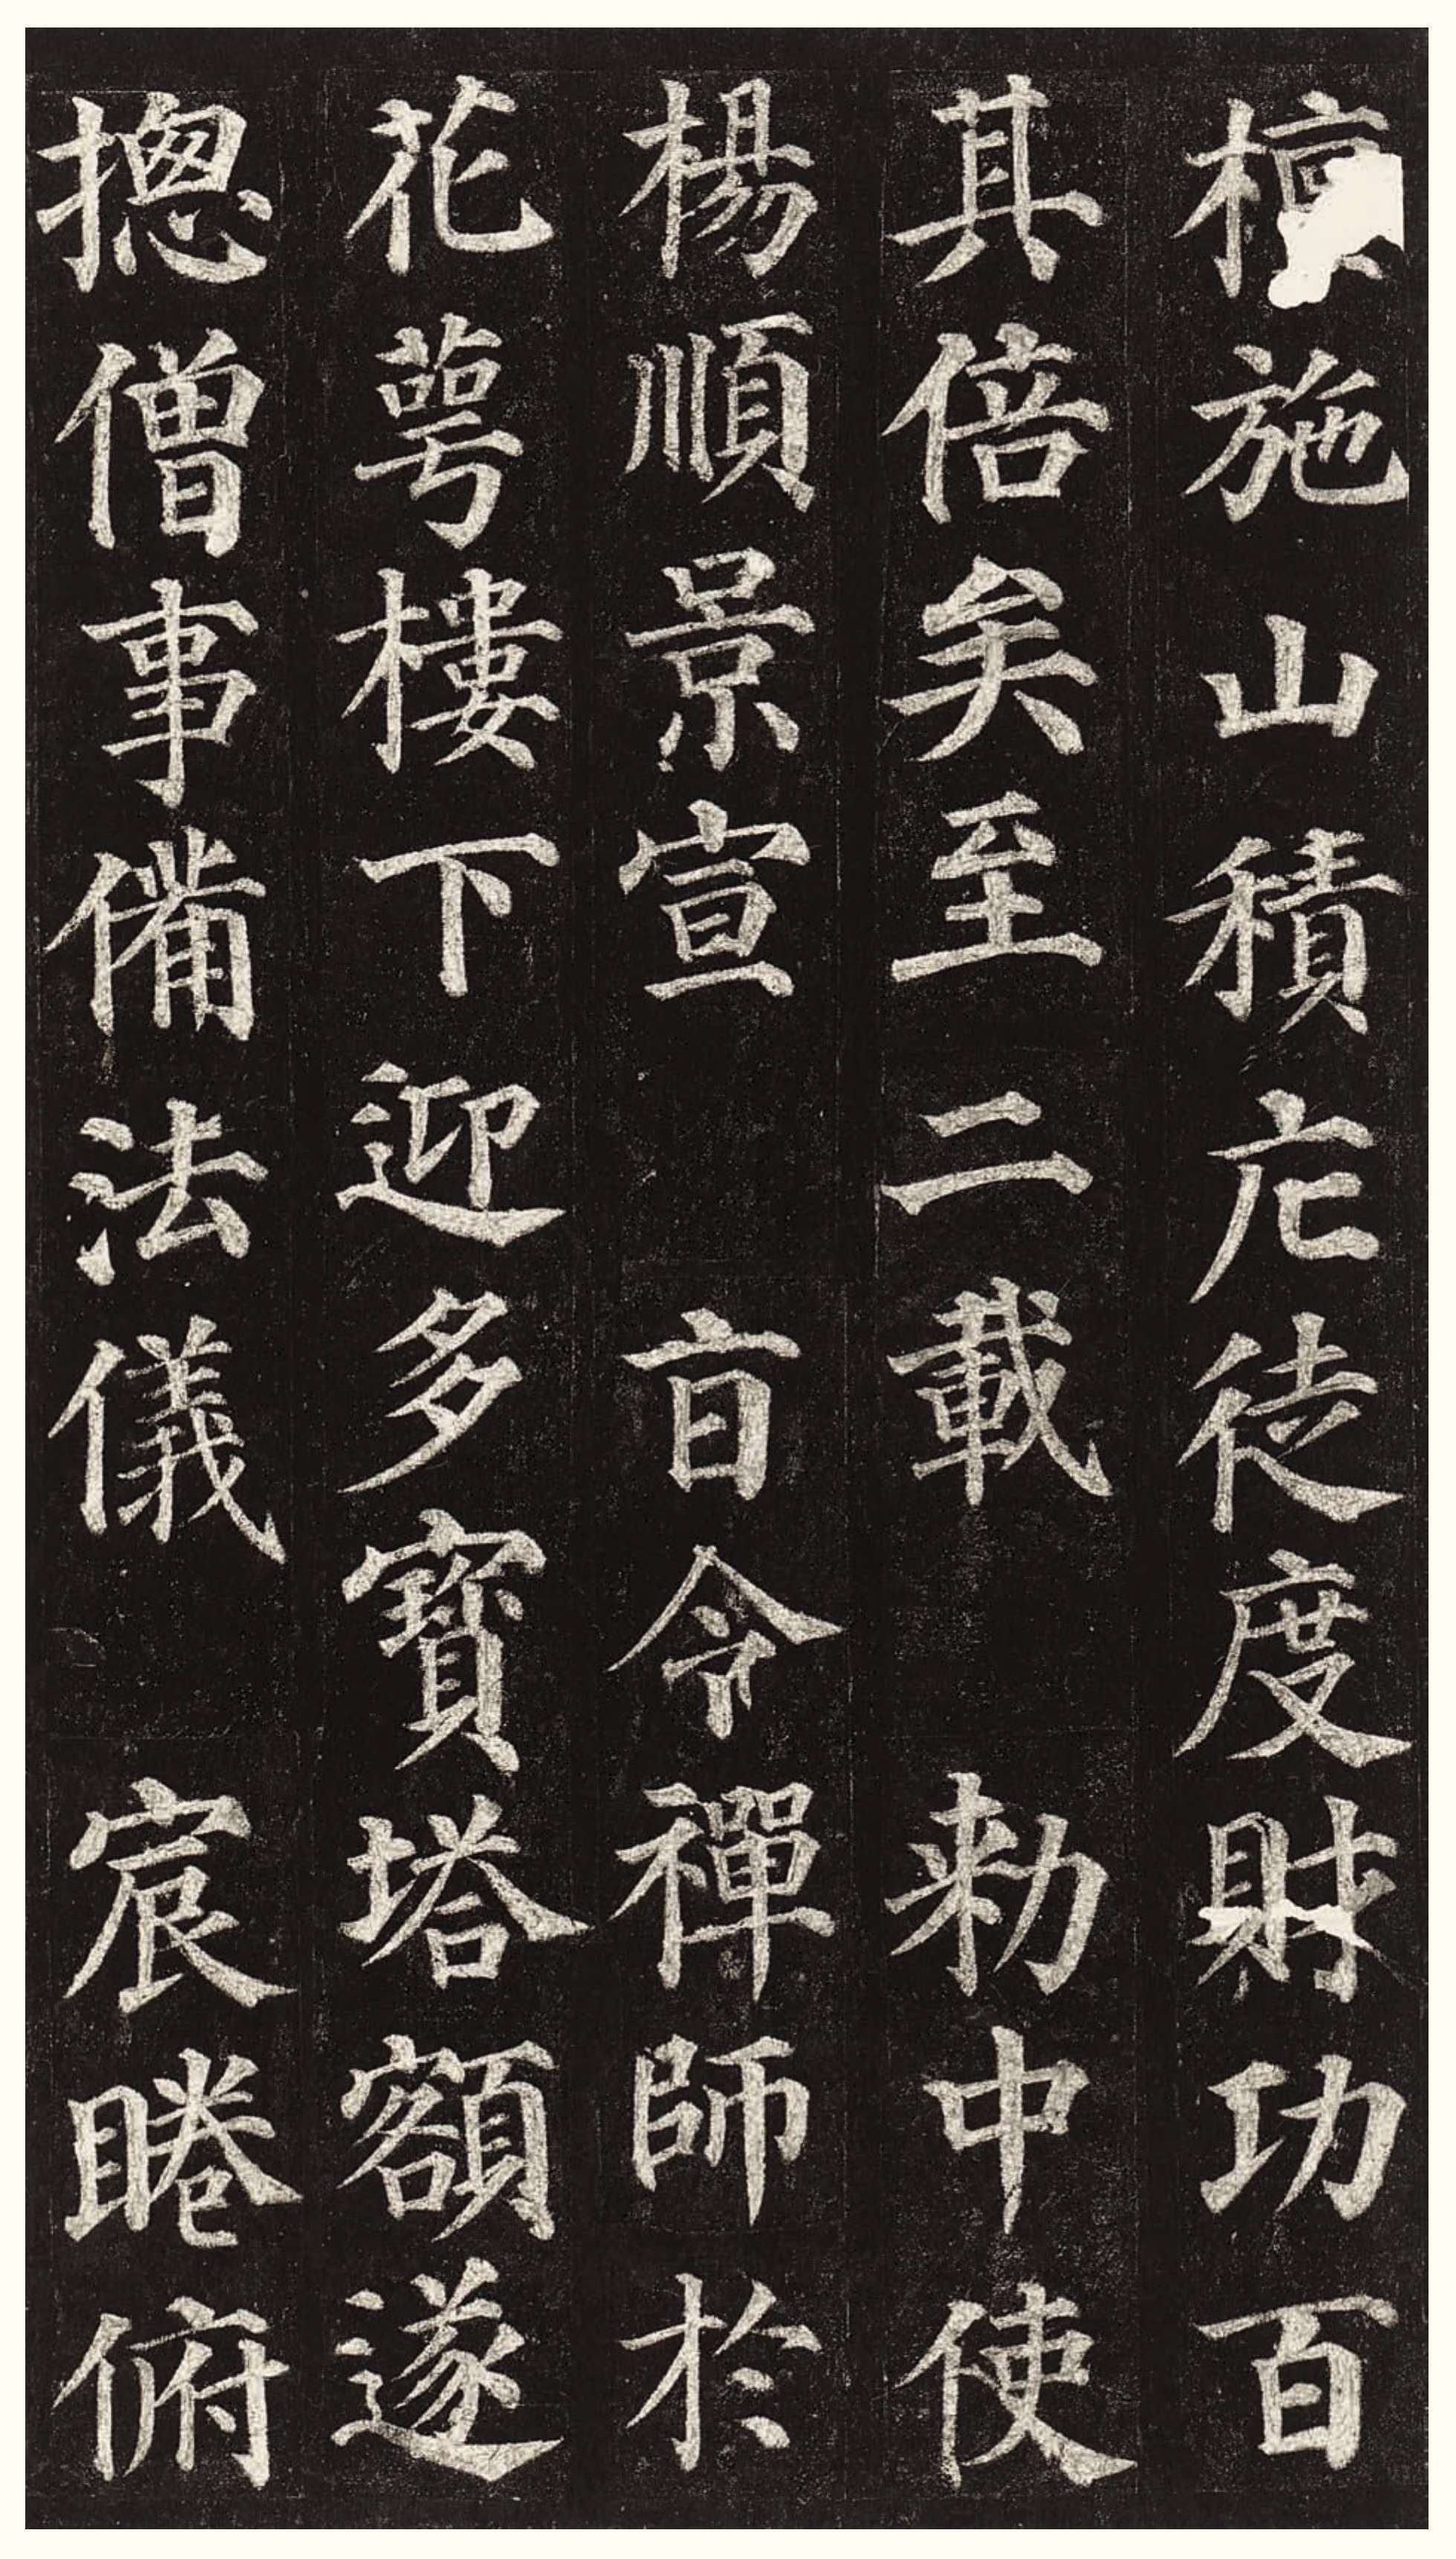 檀施山積庀徒度財功百
其倍矣至二載勑中使
楊順景宣㫖令禪師於
花萼樓下迎多寶塔額遂
摠僧事俻法儀宸睠俯